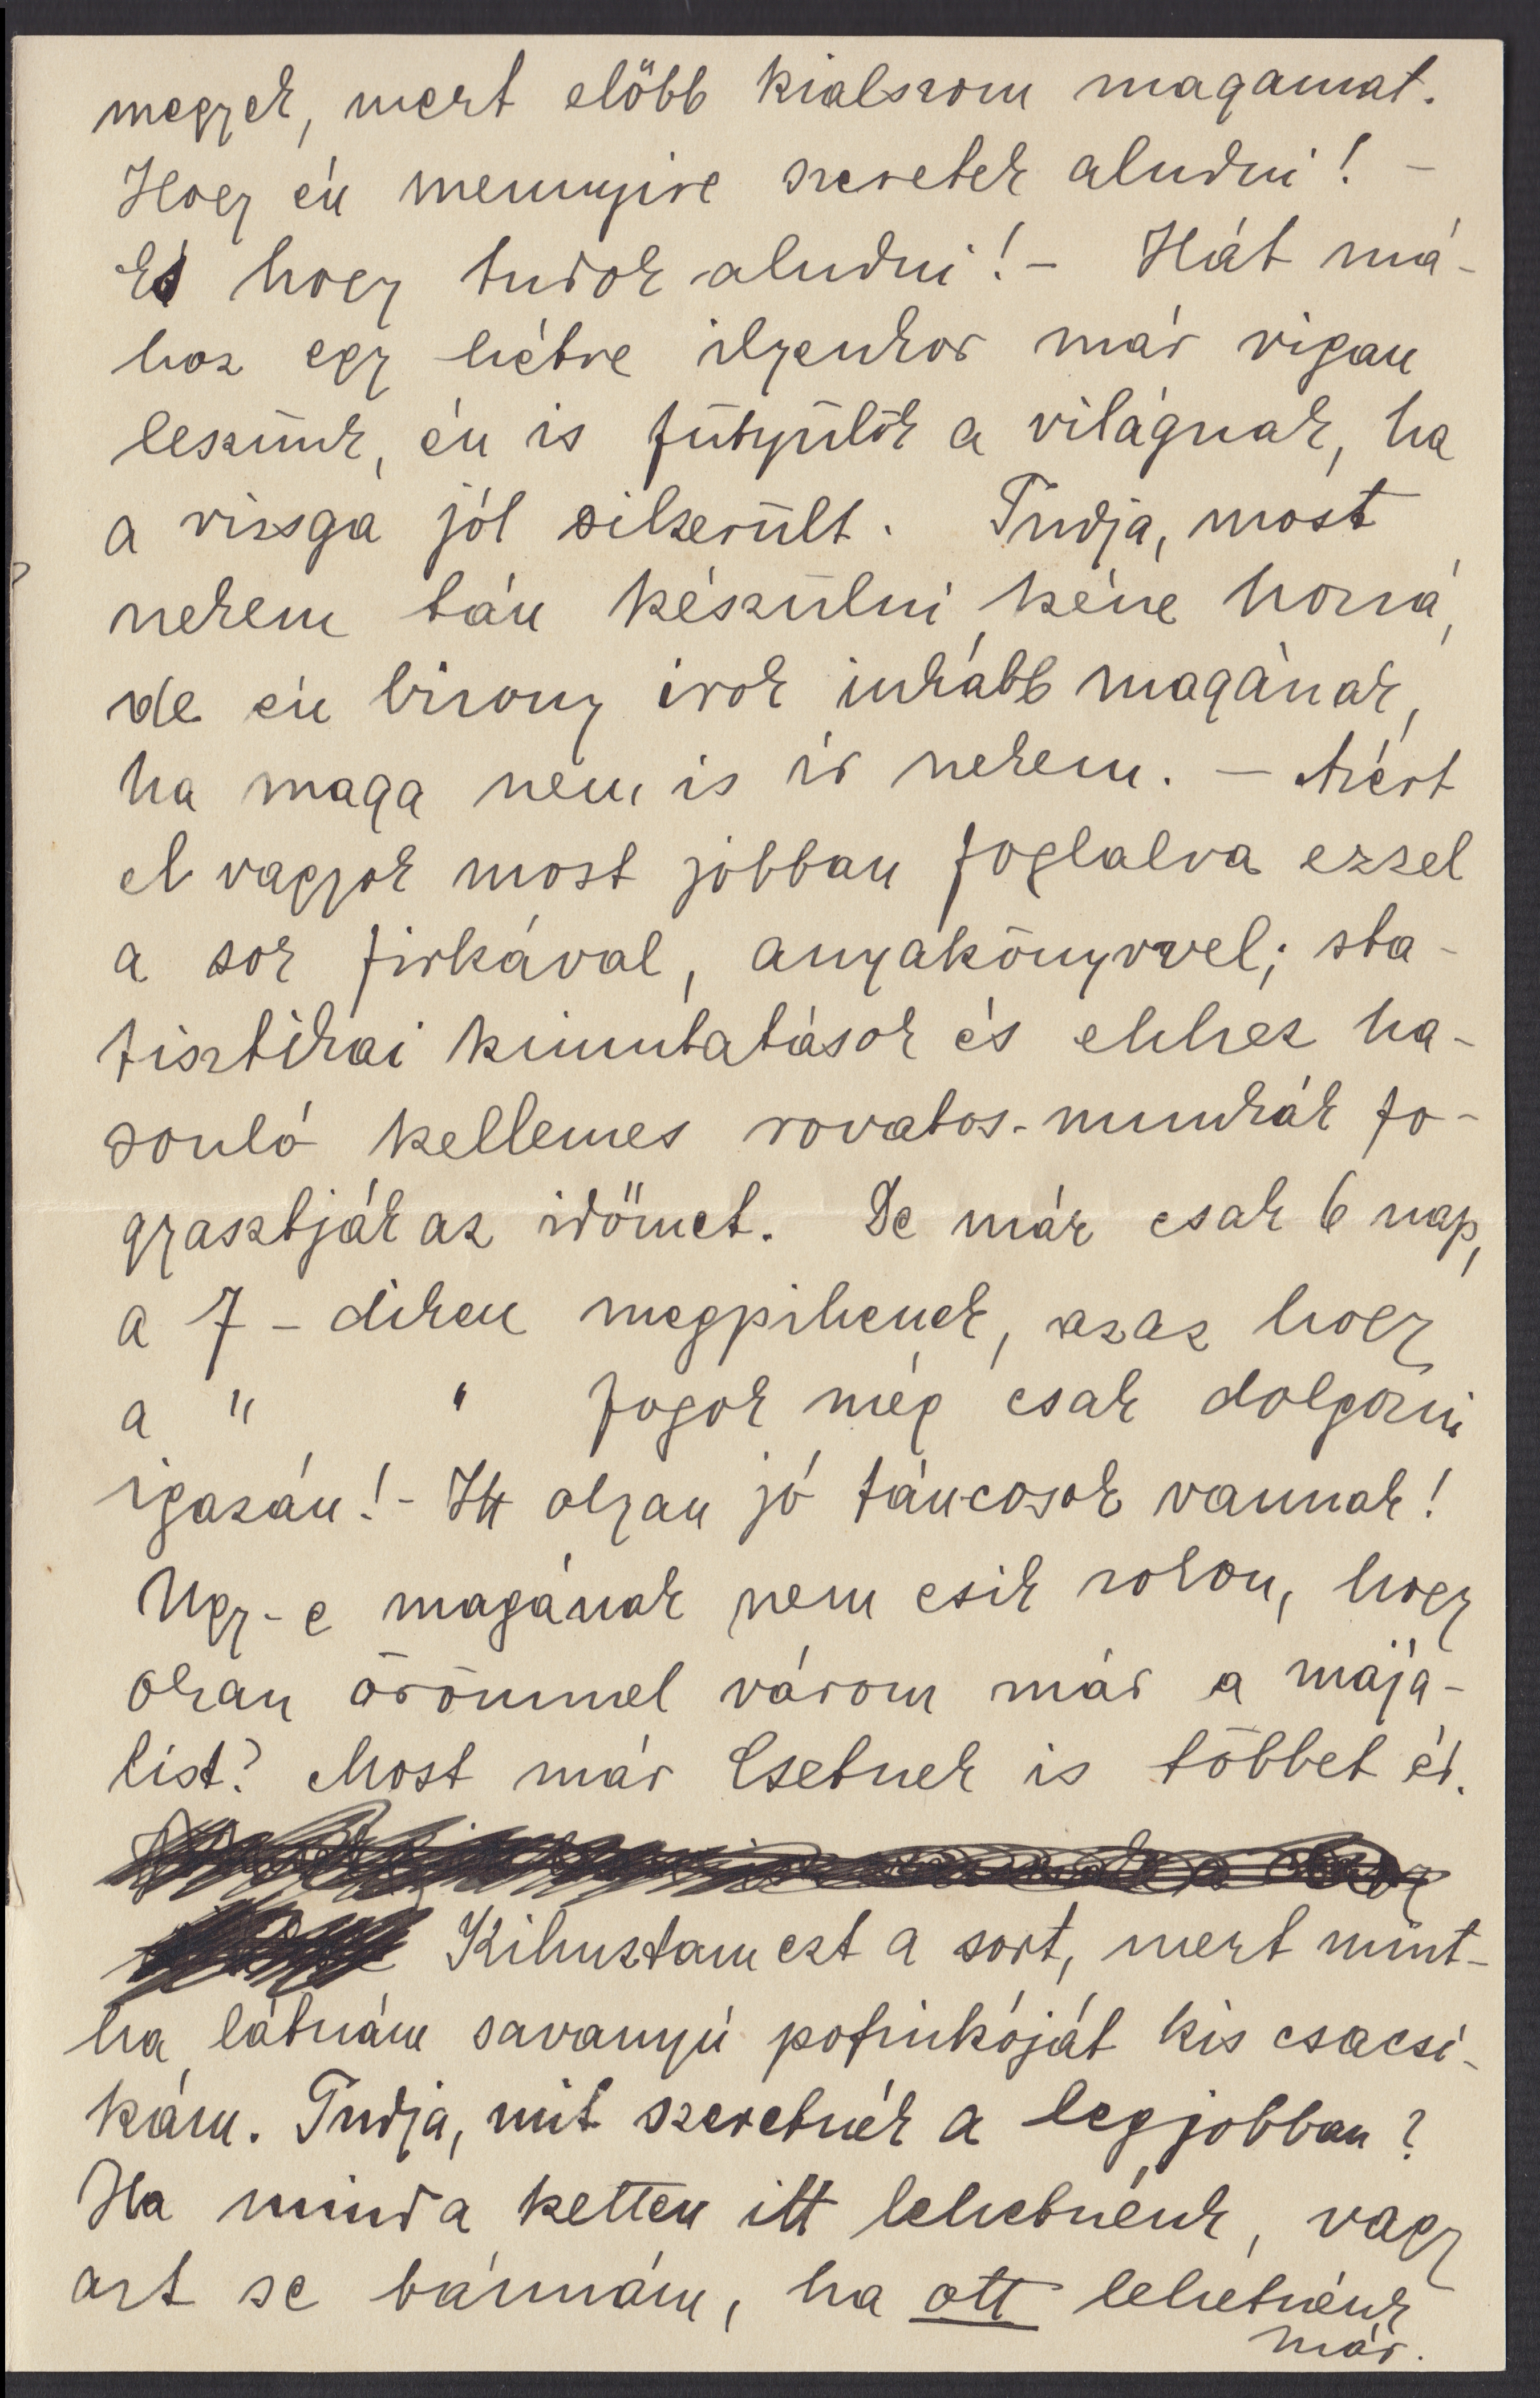 megyek, mert előbb kialszom magamat.
Hogy én mennyire szeretek aludni! –
És hogy tudok aludni! – Hát má-
hoz egy hétre ilyenkor már vigan
leszünk, én is fütyülök a világnak, ha
a vizsga jól sikerült. Tudja, most
nekem tán készülni kéne hozzá,
de én bizony irok inkább magának,
ha maga nem is ír nekem. – Azért
el vagyok most jobban foglalva ezzel
a sok firkával, anyakönyvvel; sta-
tisztikai kimutatások és ehhez ha-
sonló kellemes rovatos-munkák fo-
gyasztják az időmet. De már csak 6 nap,
a 7-diken megpihenek, azaz hogy
a " " fogok még csak dolgozni
igazán! – Itt olyan jó táncosok vannak!
Ugy-e magának nem esik zokon, hogy
olyan örömmel várom már a majá-
list? Most már Csetnek is többet ér.
Kihuztam ezt a sort, mert mint-
ha látnám savanyú pofinkóját kis csacsi-
kám. Tudja, mit szeretnék a legjobban?
Ha mind a ketten itt lehetnénk, vagy
azt se bánnám, ha ott lehetnénk
már.